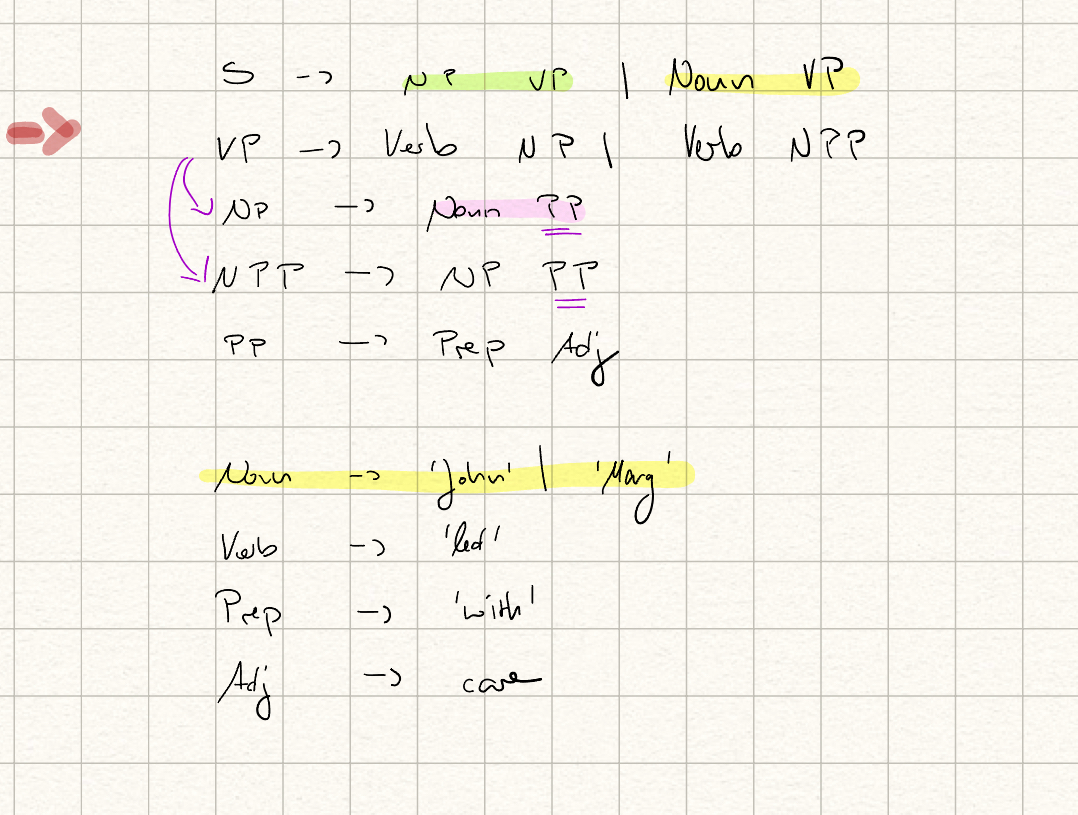 S -> NP VP | Noun VP
VP -> Verb NP | Verb NPP
NP -> Noun PP
NPP -> NP PP
PP -> Prep Adj
Noun -> 'John' | 'Mary'
Verb -> 'led'
Prep -> 'with'
Adj -> care